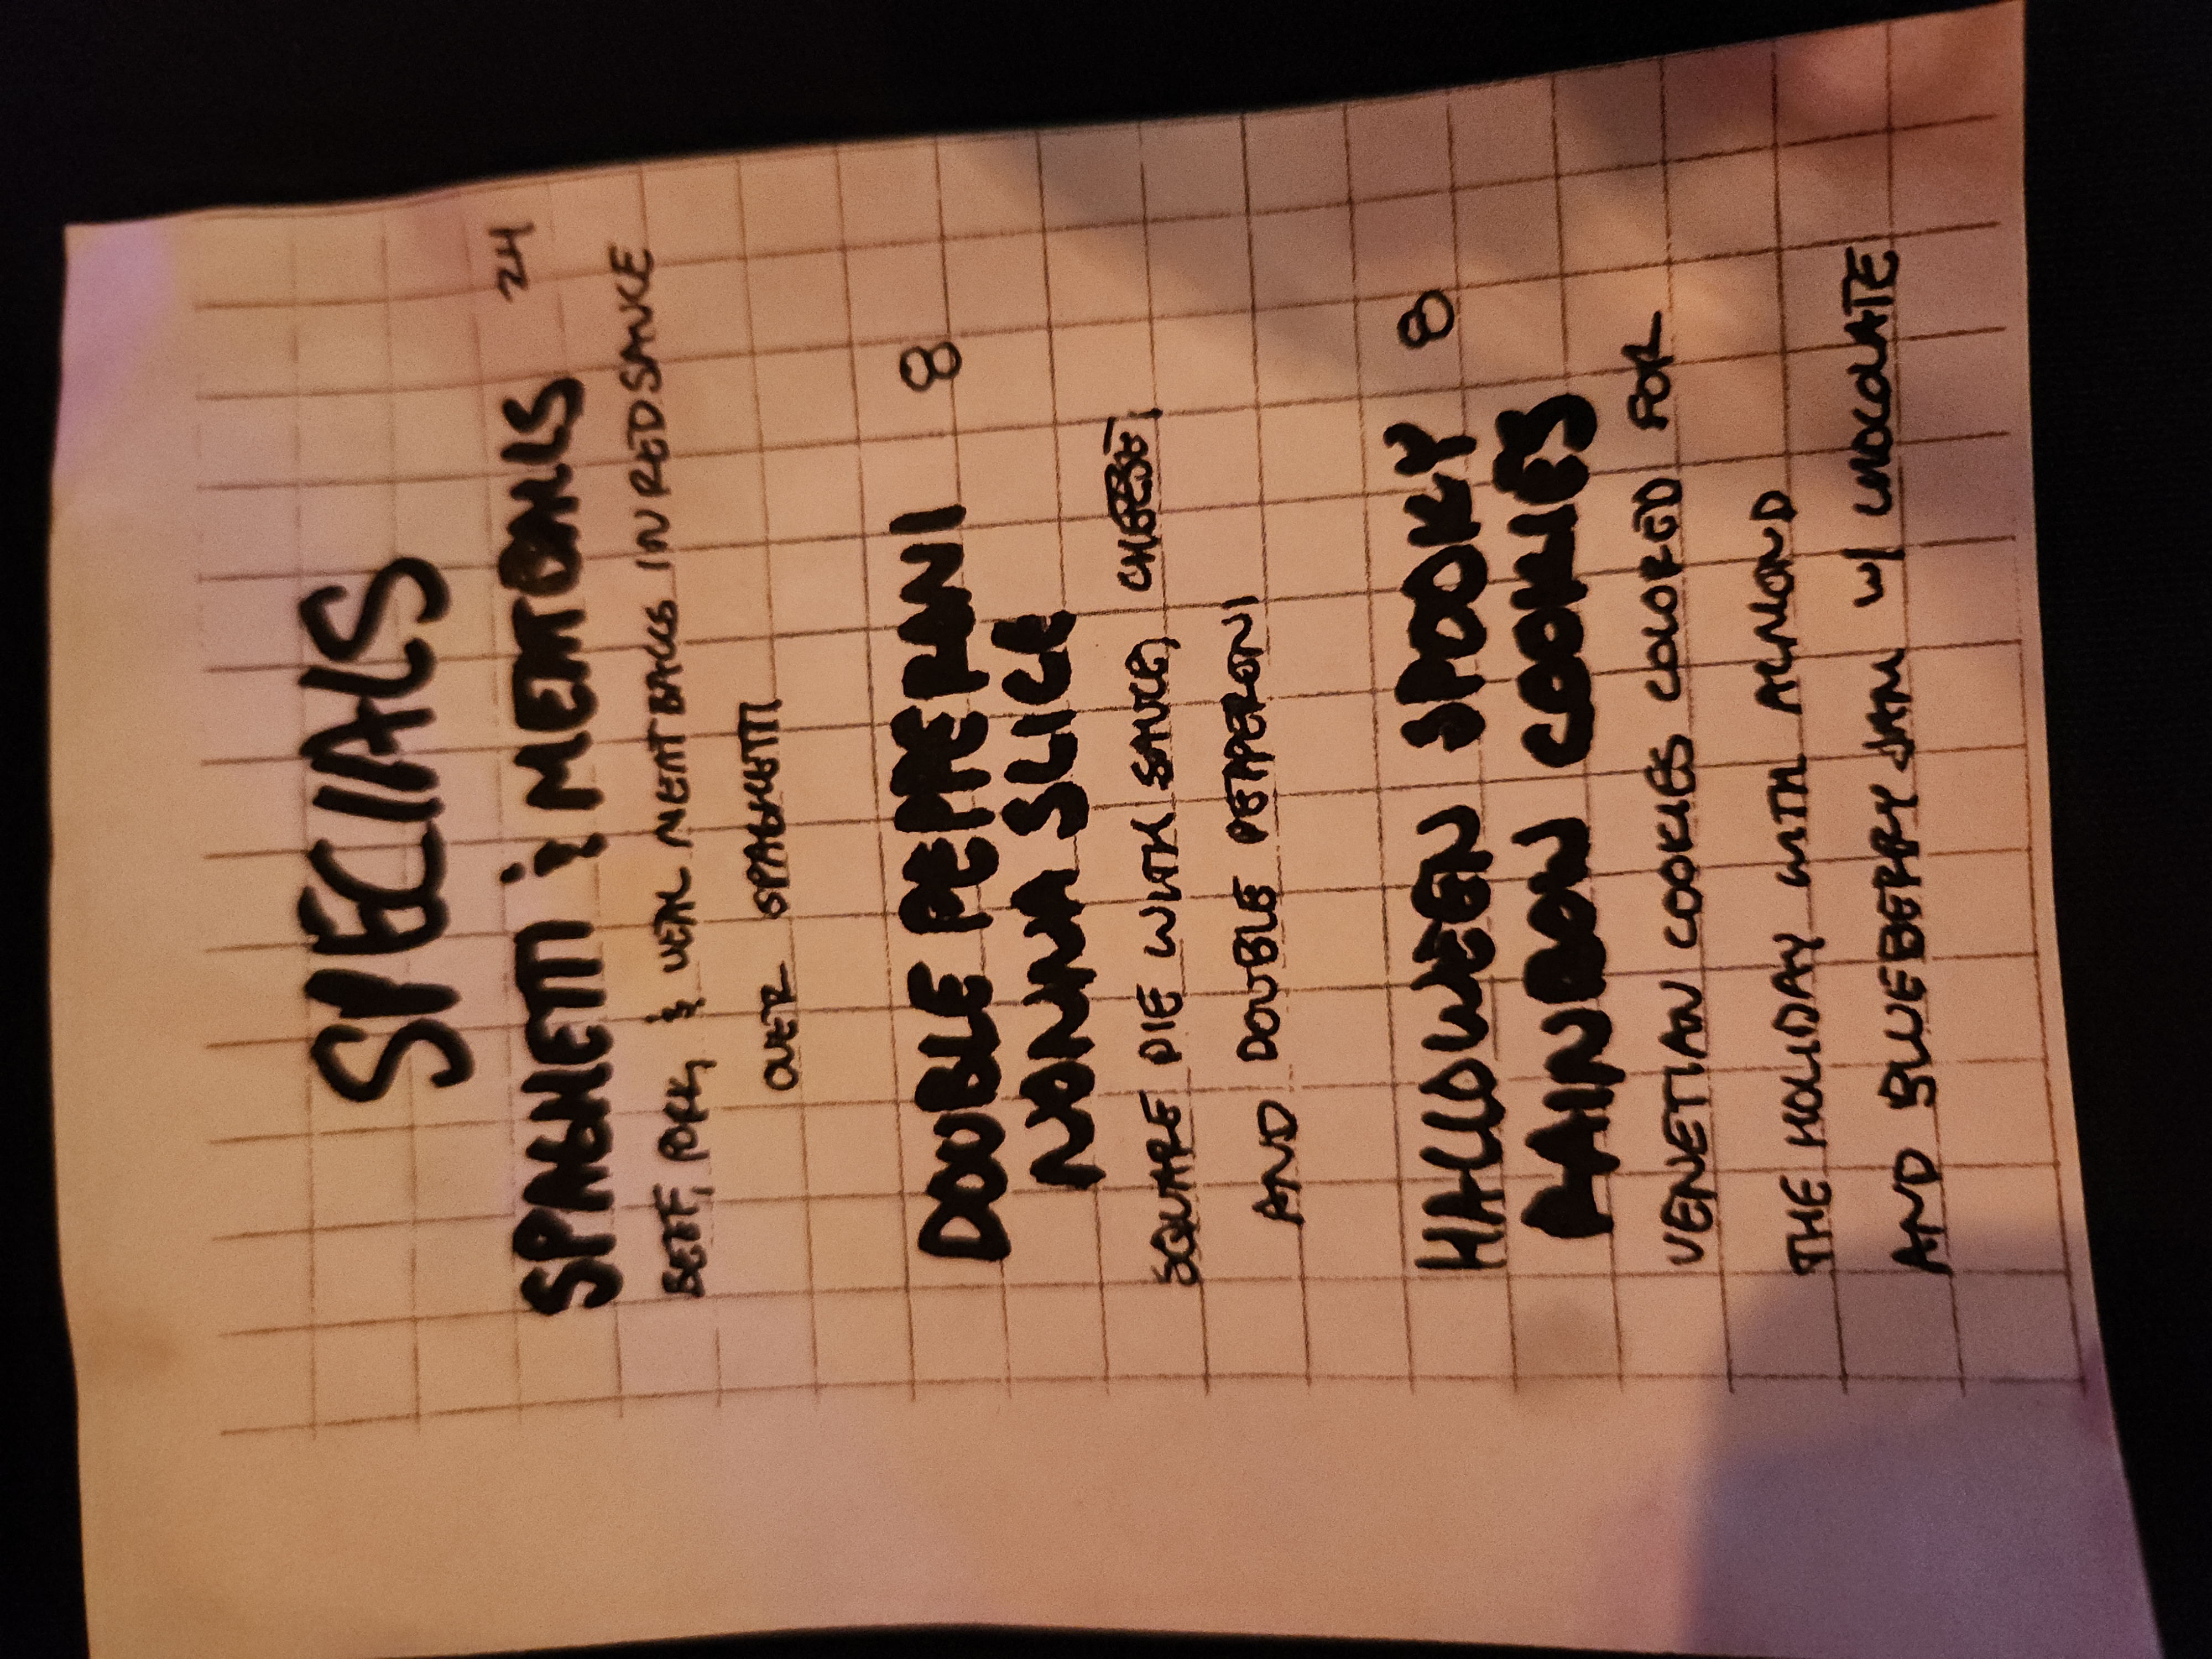 SPECIALS
SPAGHETTI & MEATBALLS 24
BEEF, PORK, & VEAL MEATBALLS IN RED SAUCE
OVER SPAGHETTI
DOUBLE PEPPERONI 8
NONNA SLICE
SQUARE PIE WITH SAUCE, CHEESE,
AND DOUBLE PEPPERONI
HALLOWEEN SPOOKY 8
RAINBOW COOKIES
VENETIAN COOKIES COLORED FOR
THE HOLIDAY WITH ALMOND
AND BLUEBERRY JAM W/ CHOCOLATE